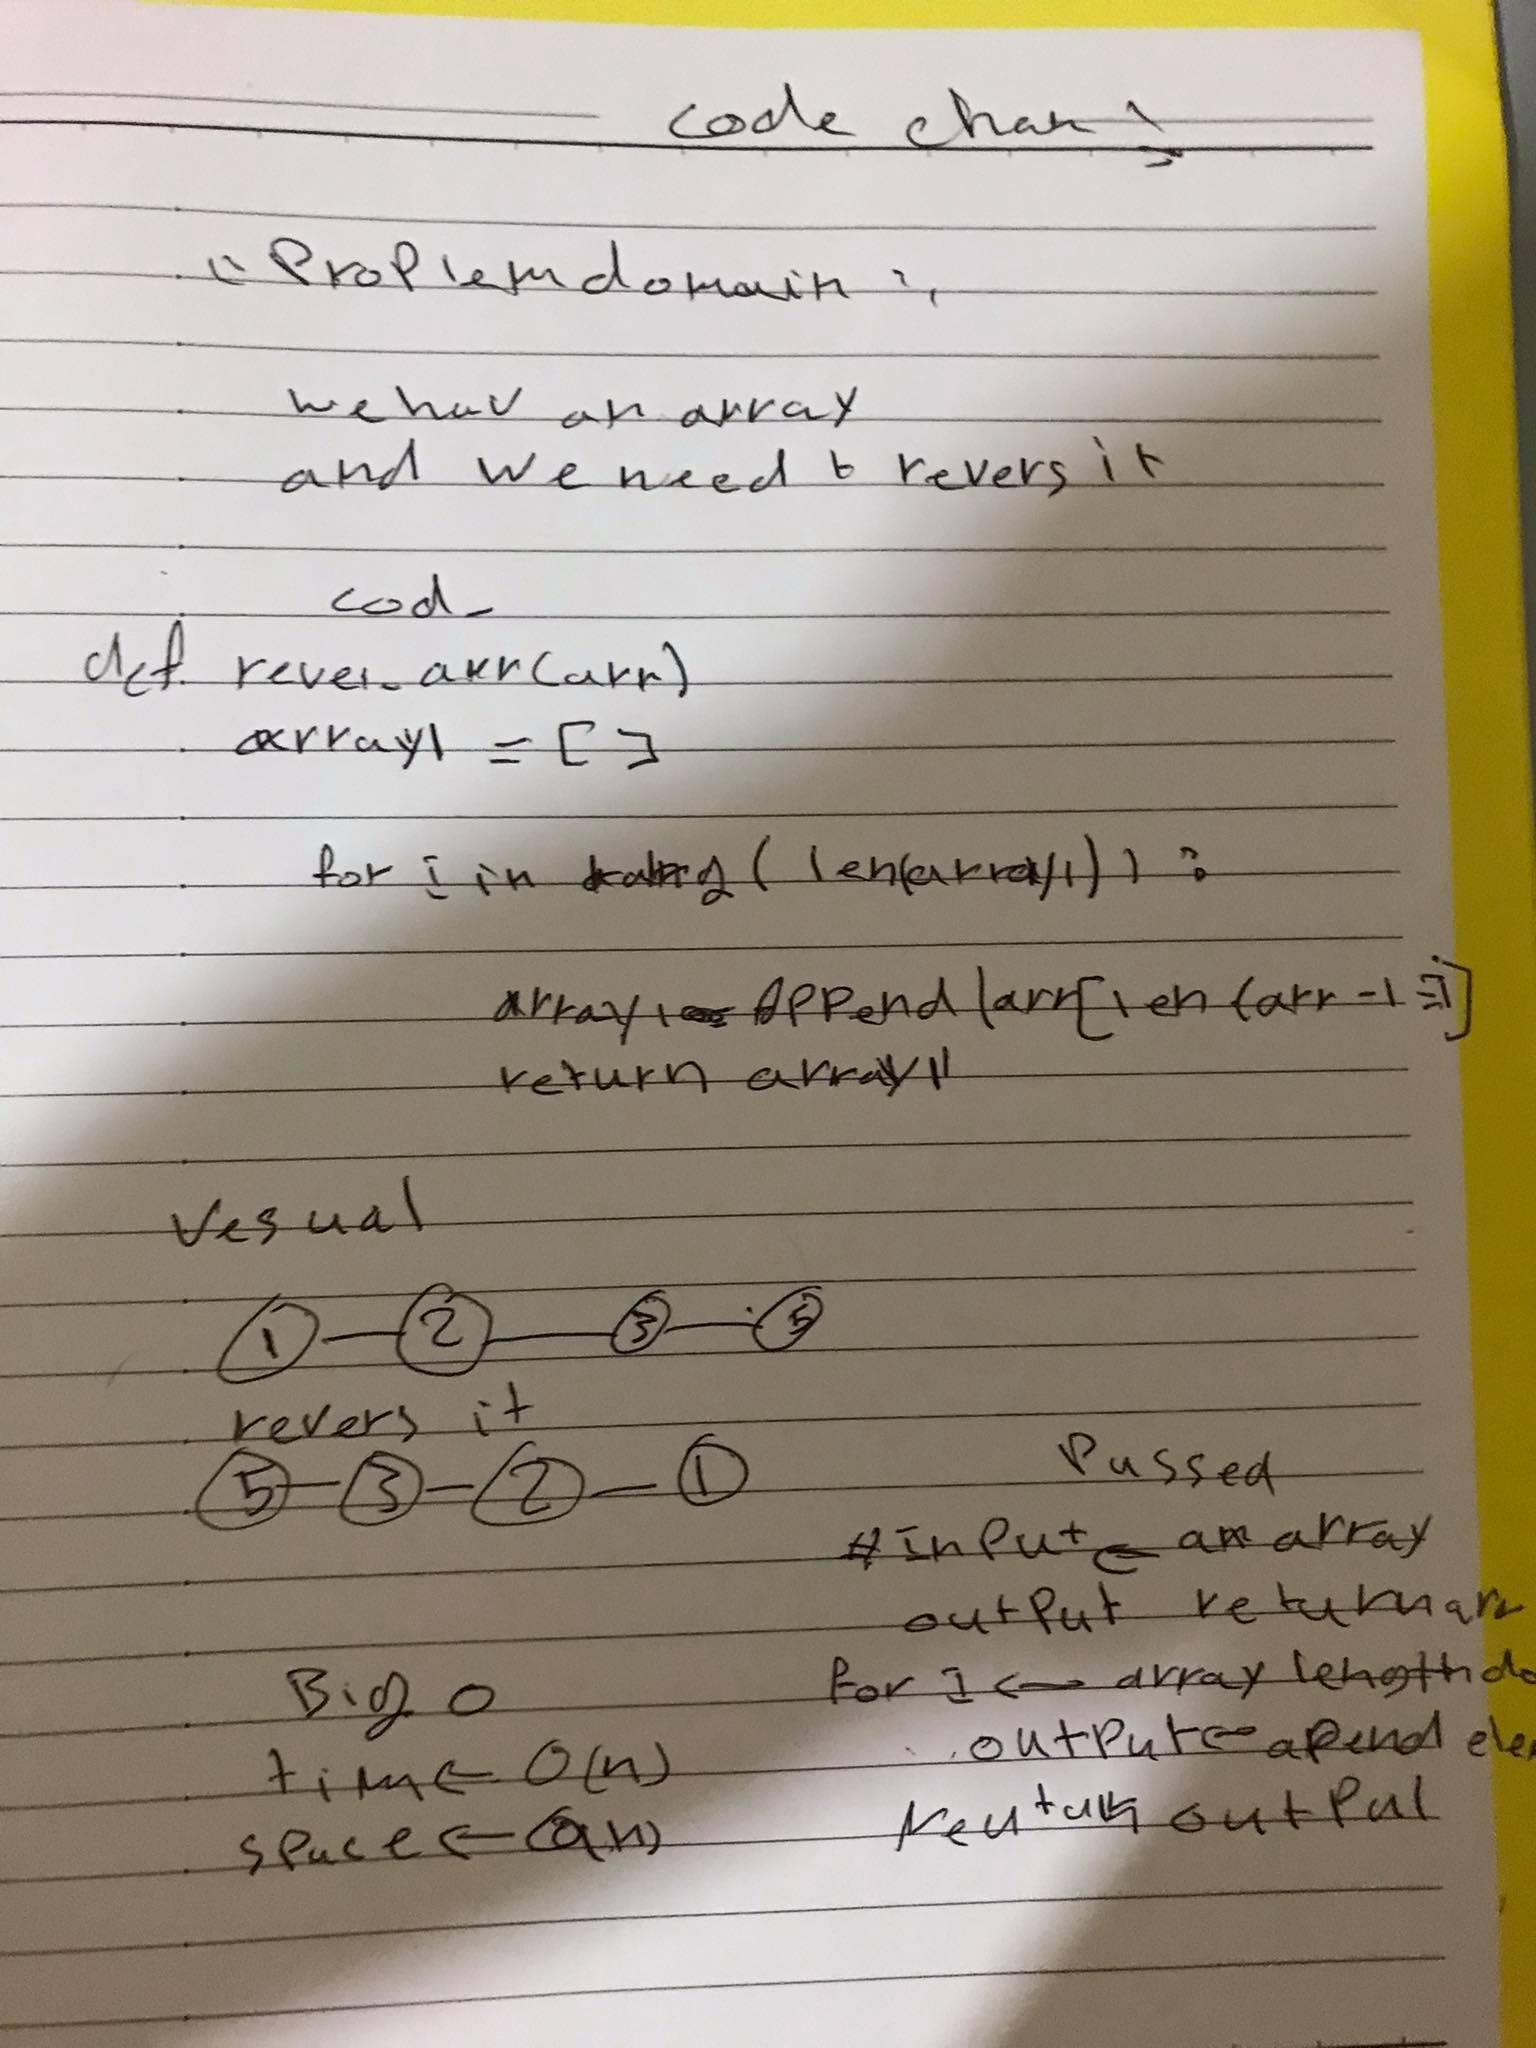 code chan
"Proplem domain :,
we hav an array
and we need to revers it
cod
def rever_arr(arr)
array1 = []
for i in rang(len(array1)):
array1 Append(arr[len(arr-1-i]
return array1
Vesual
1 2 3 5
revers it
5 3 2 1
Big O
time ← O(n)
space ← O(n)
Pussed
#input ← an array
output return arr
for I ← array length do
output ← apend ele
output